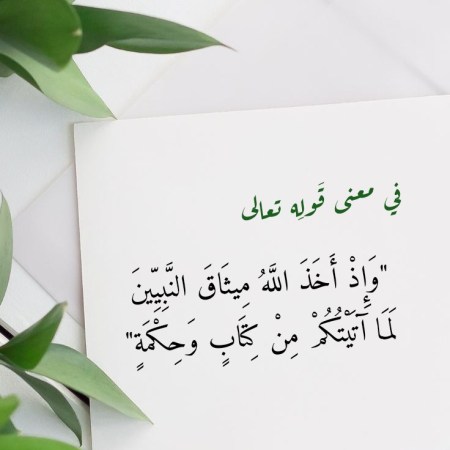 في معنى قَولِه تعالى
"وَإِذْ أَخَذَ اللَّهُ مِيثَاقَ النَّبِيِّينَ
لَمَا آتَيْتُكُمْ مِنْ كِتَابٍ وَحِكْمَةٍ"